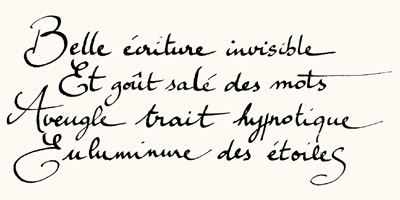 Belle écriture invisible
Et goût salé des mots
Aveugle trait hypnotique
Enluminure des étoiles